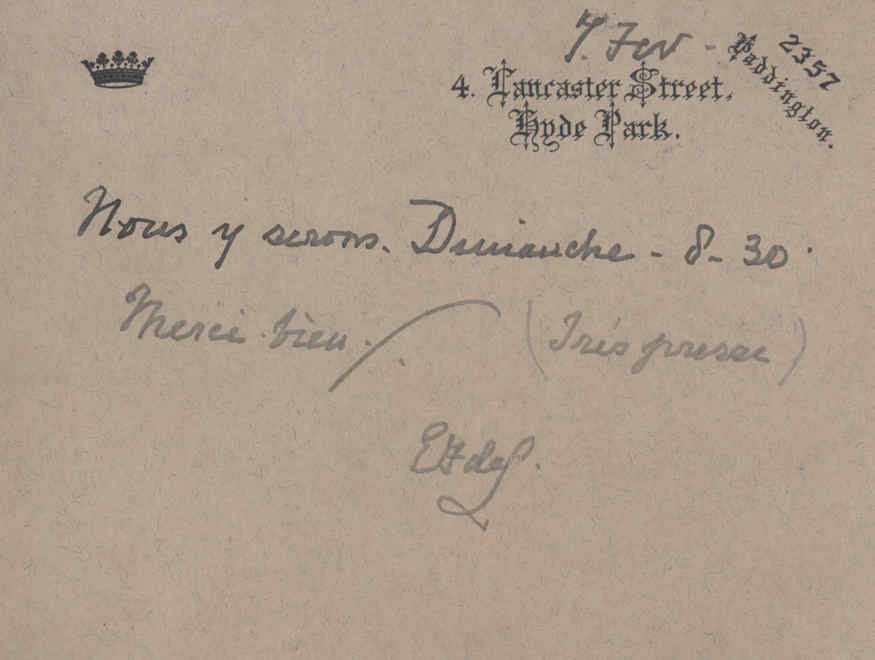 7. Fev -
2357
Paddington.
4. Lancaster Street,
Hyde Park.
Nous y serons. Dimanche - 8 - 30
Merci bien. (Très pressé)